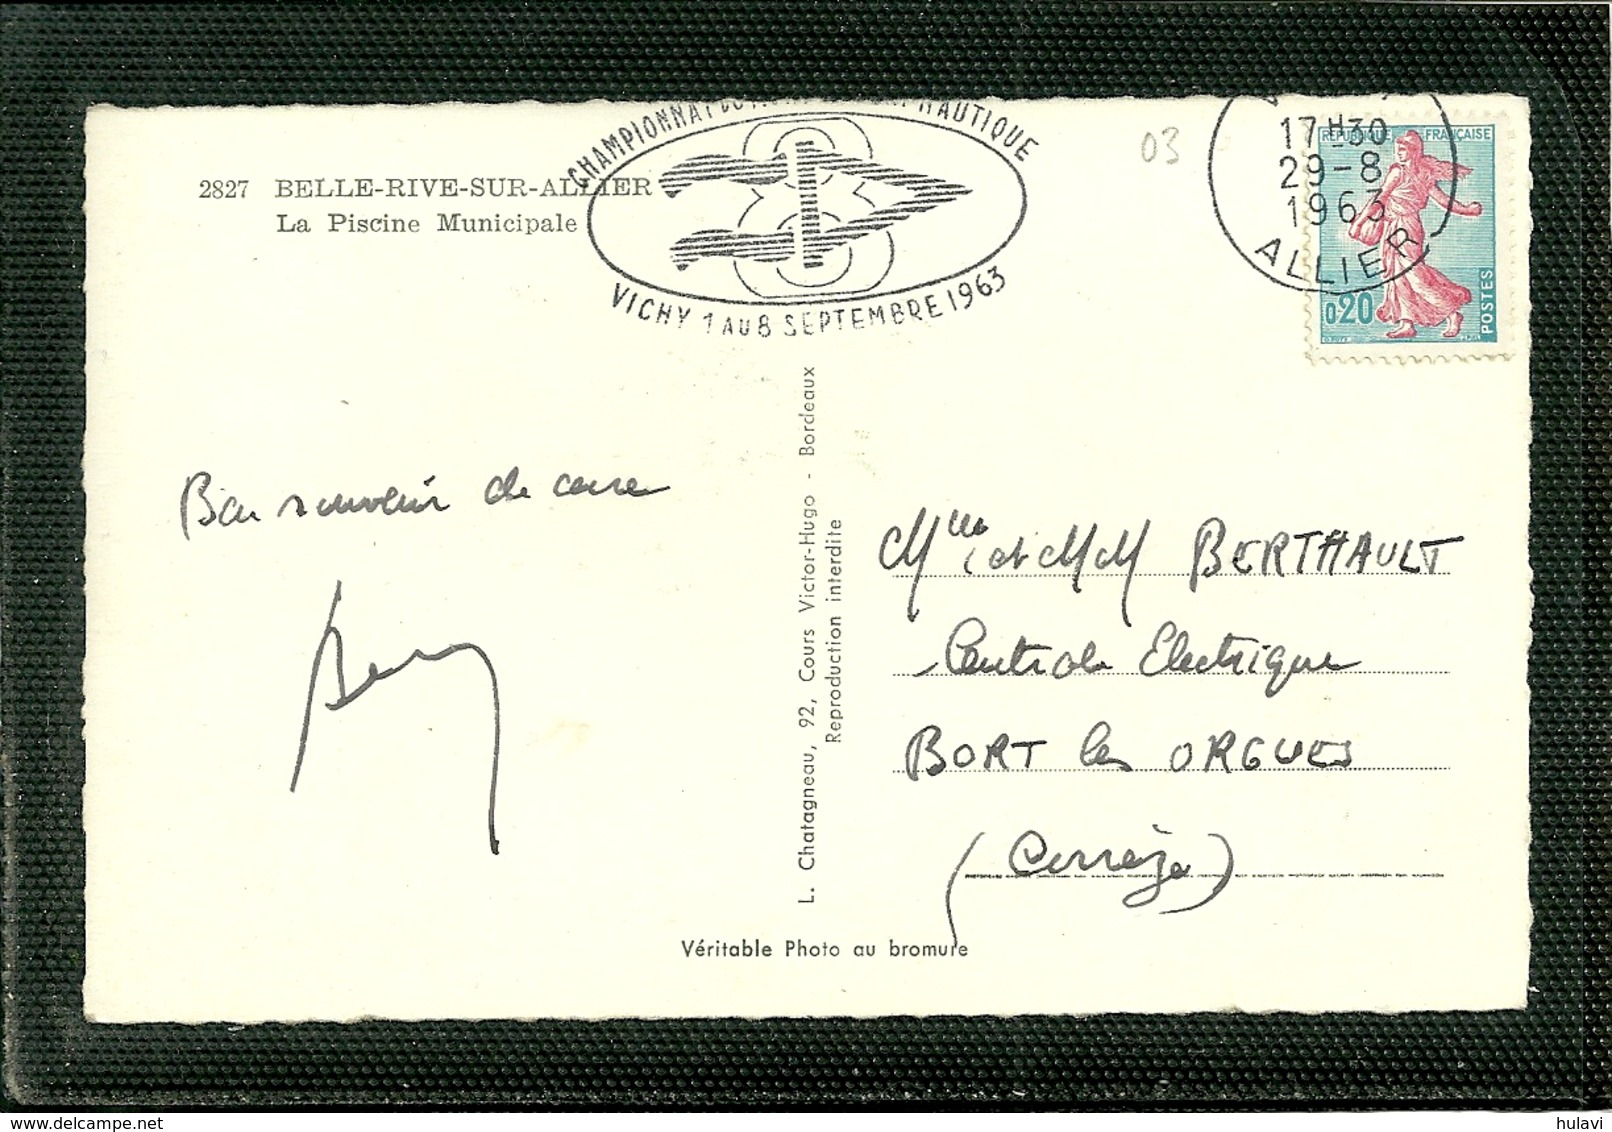 CHAMPIONNAT DU MONDE DE SKI NAUTIQUE
VICHY 1 AU 8 SEPTEMBRE 1963
03
17H30
29-8
1963
ALLIER
REPUBLIQUE FRANÇAISE
0,20
POSTES
2827 BELLE-RIVE-SUR-ALLIER
La Piscine Municipale
Bon souvenir de cure
L. Chatagneau, 92, Cours Victor-Hugo - Bordeaux
Reproduction interdite
Mlle et MM BERTHAULT
Centrale Electrique
BORT les ORGUES
(Corrèze)
Véritable Photo au bromure
hulavi